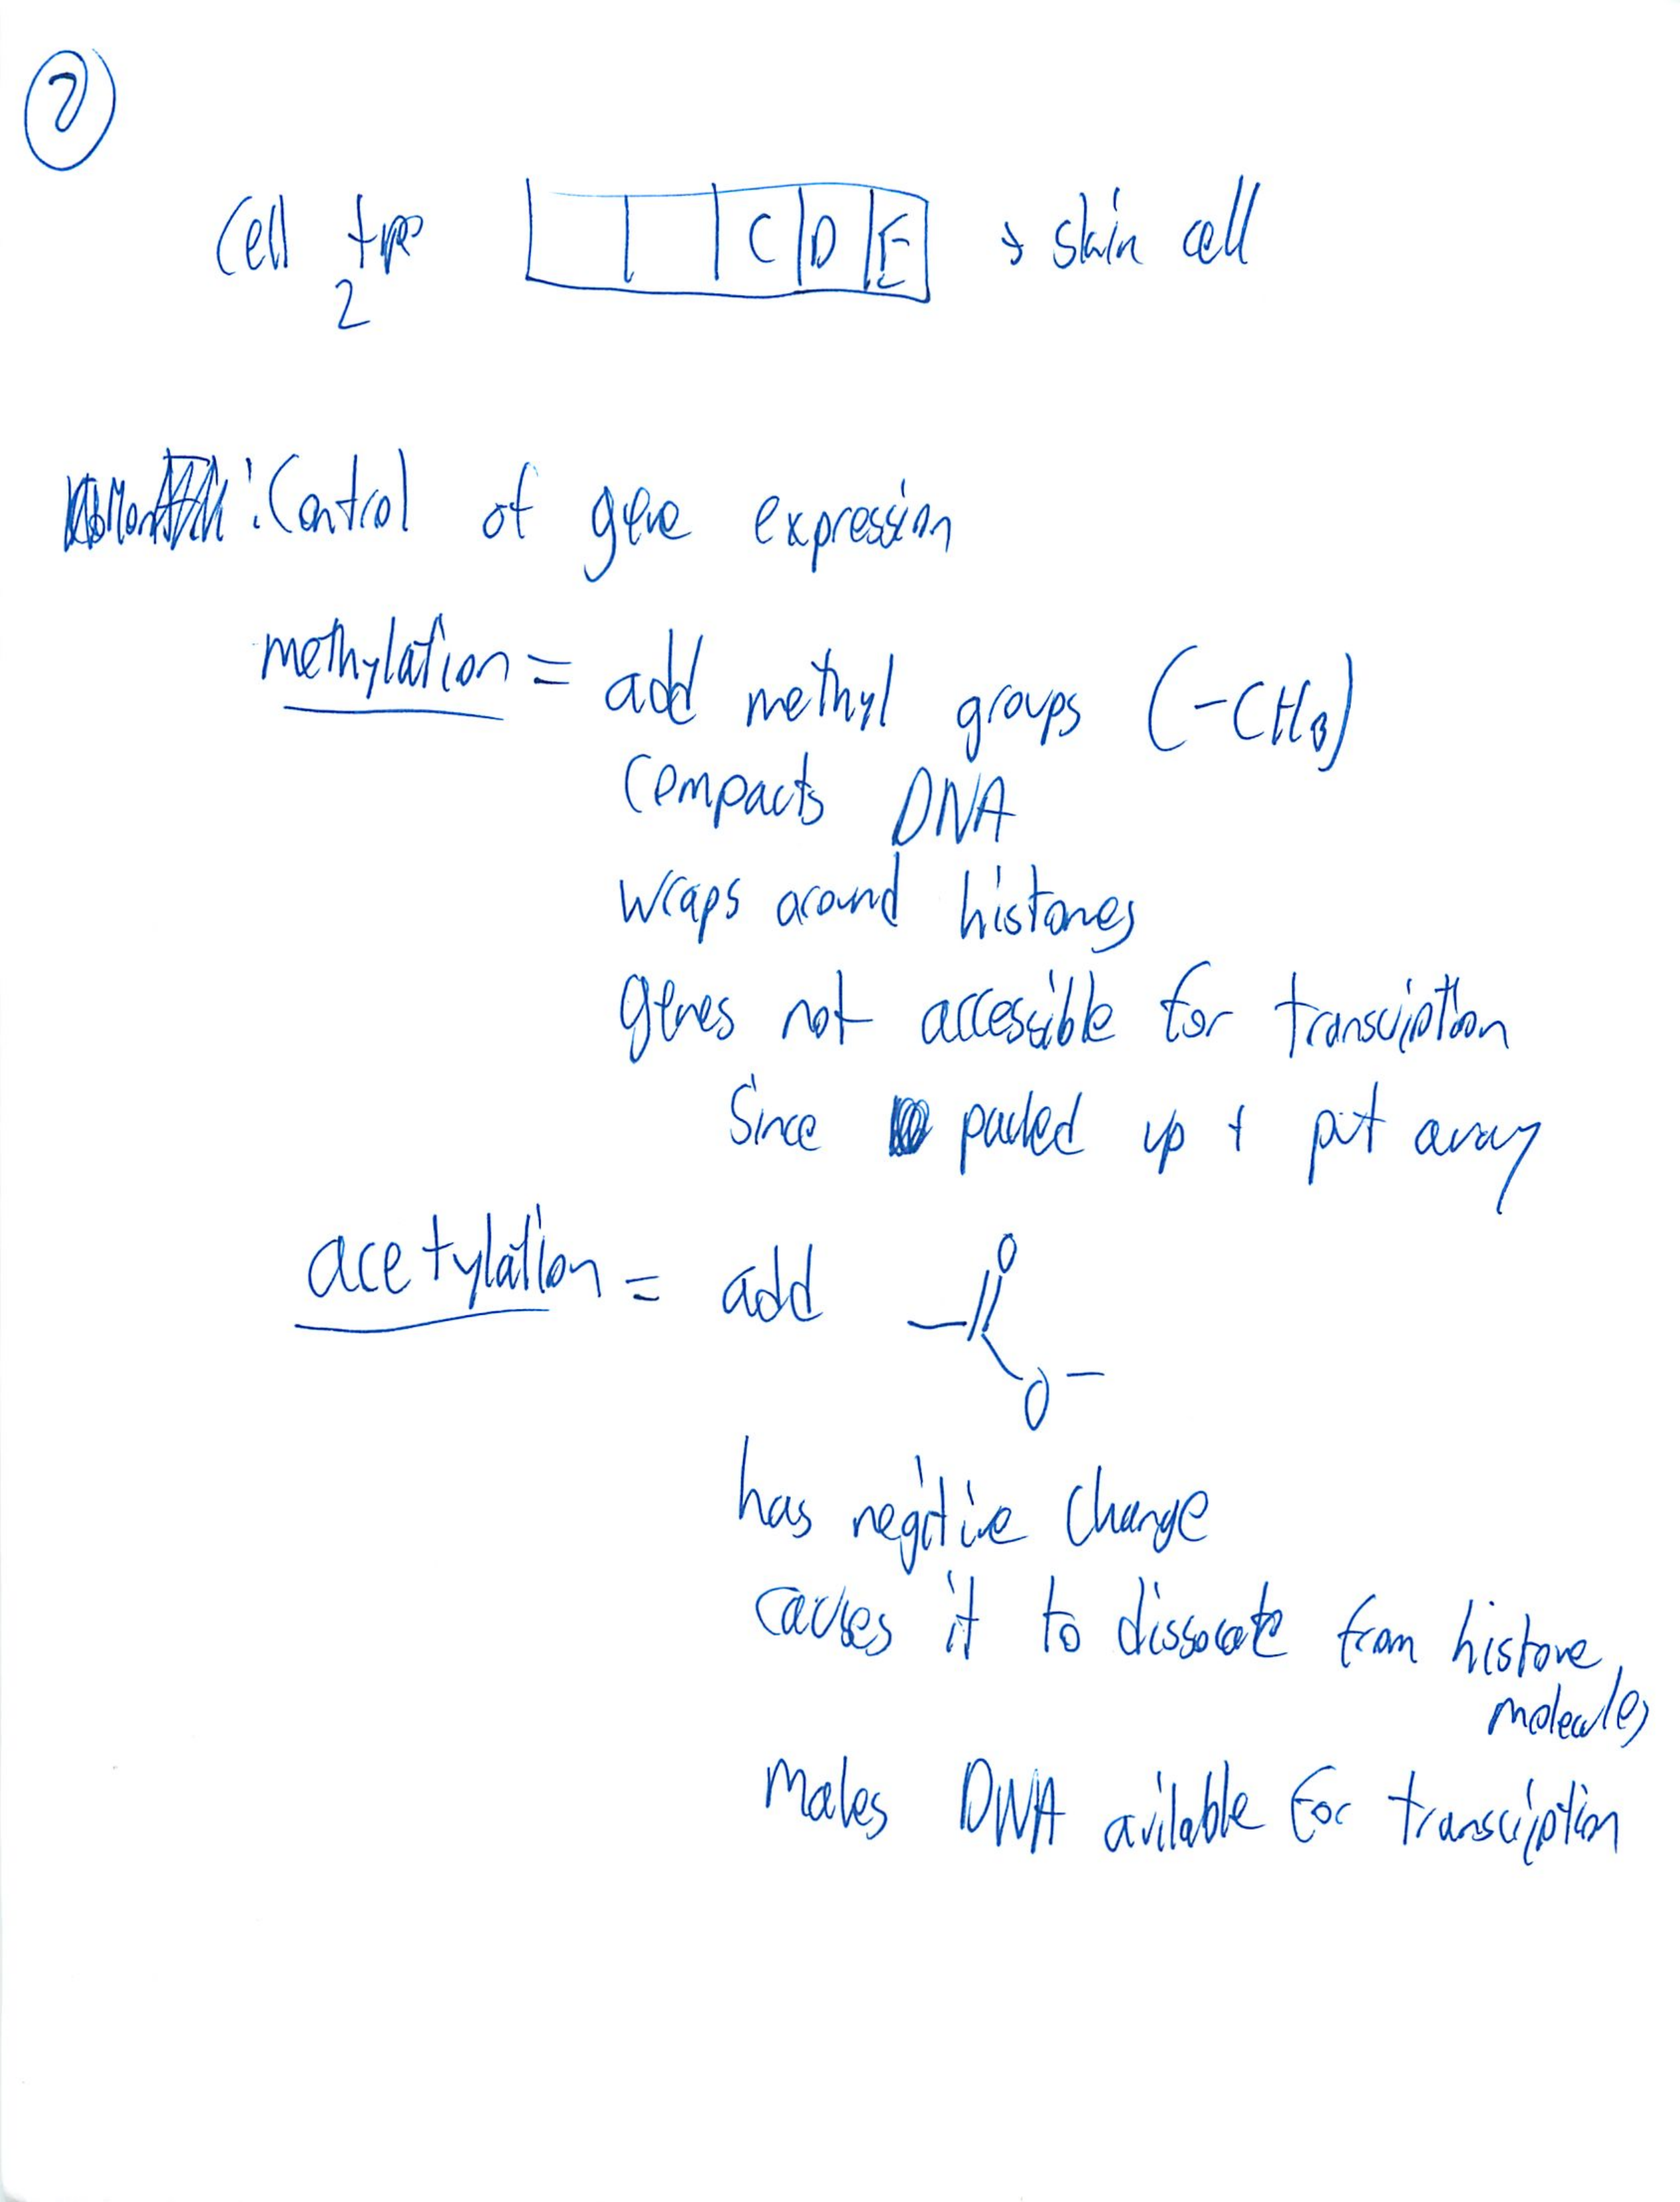 2
Cell type C D E → skin cell
2
: Control of gene expression
methylation = add methyl groups (-CH3)
compacts DNA
wraps around histones
genes not accessible for transcription
since packed up + put away
acetylation = add O
O-
has negitive charge
causes it to dissocate from histone
molecules
makes DNA avilable for transcription